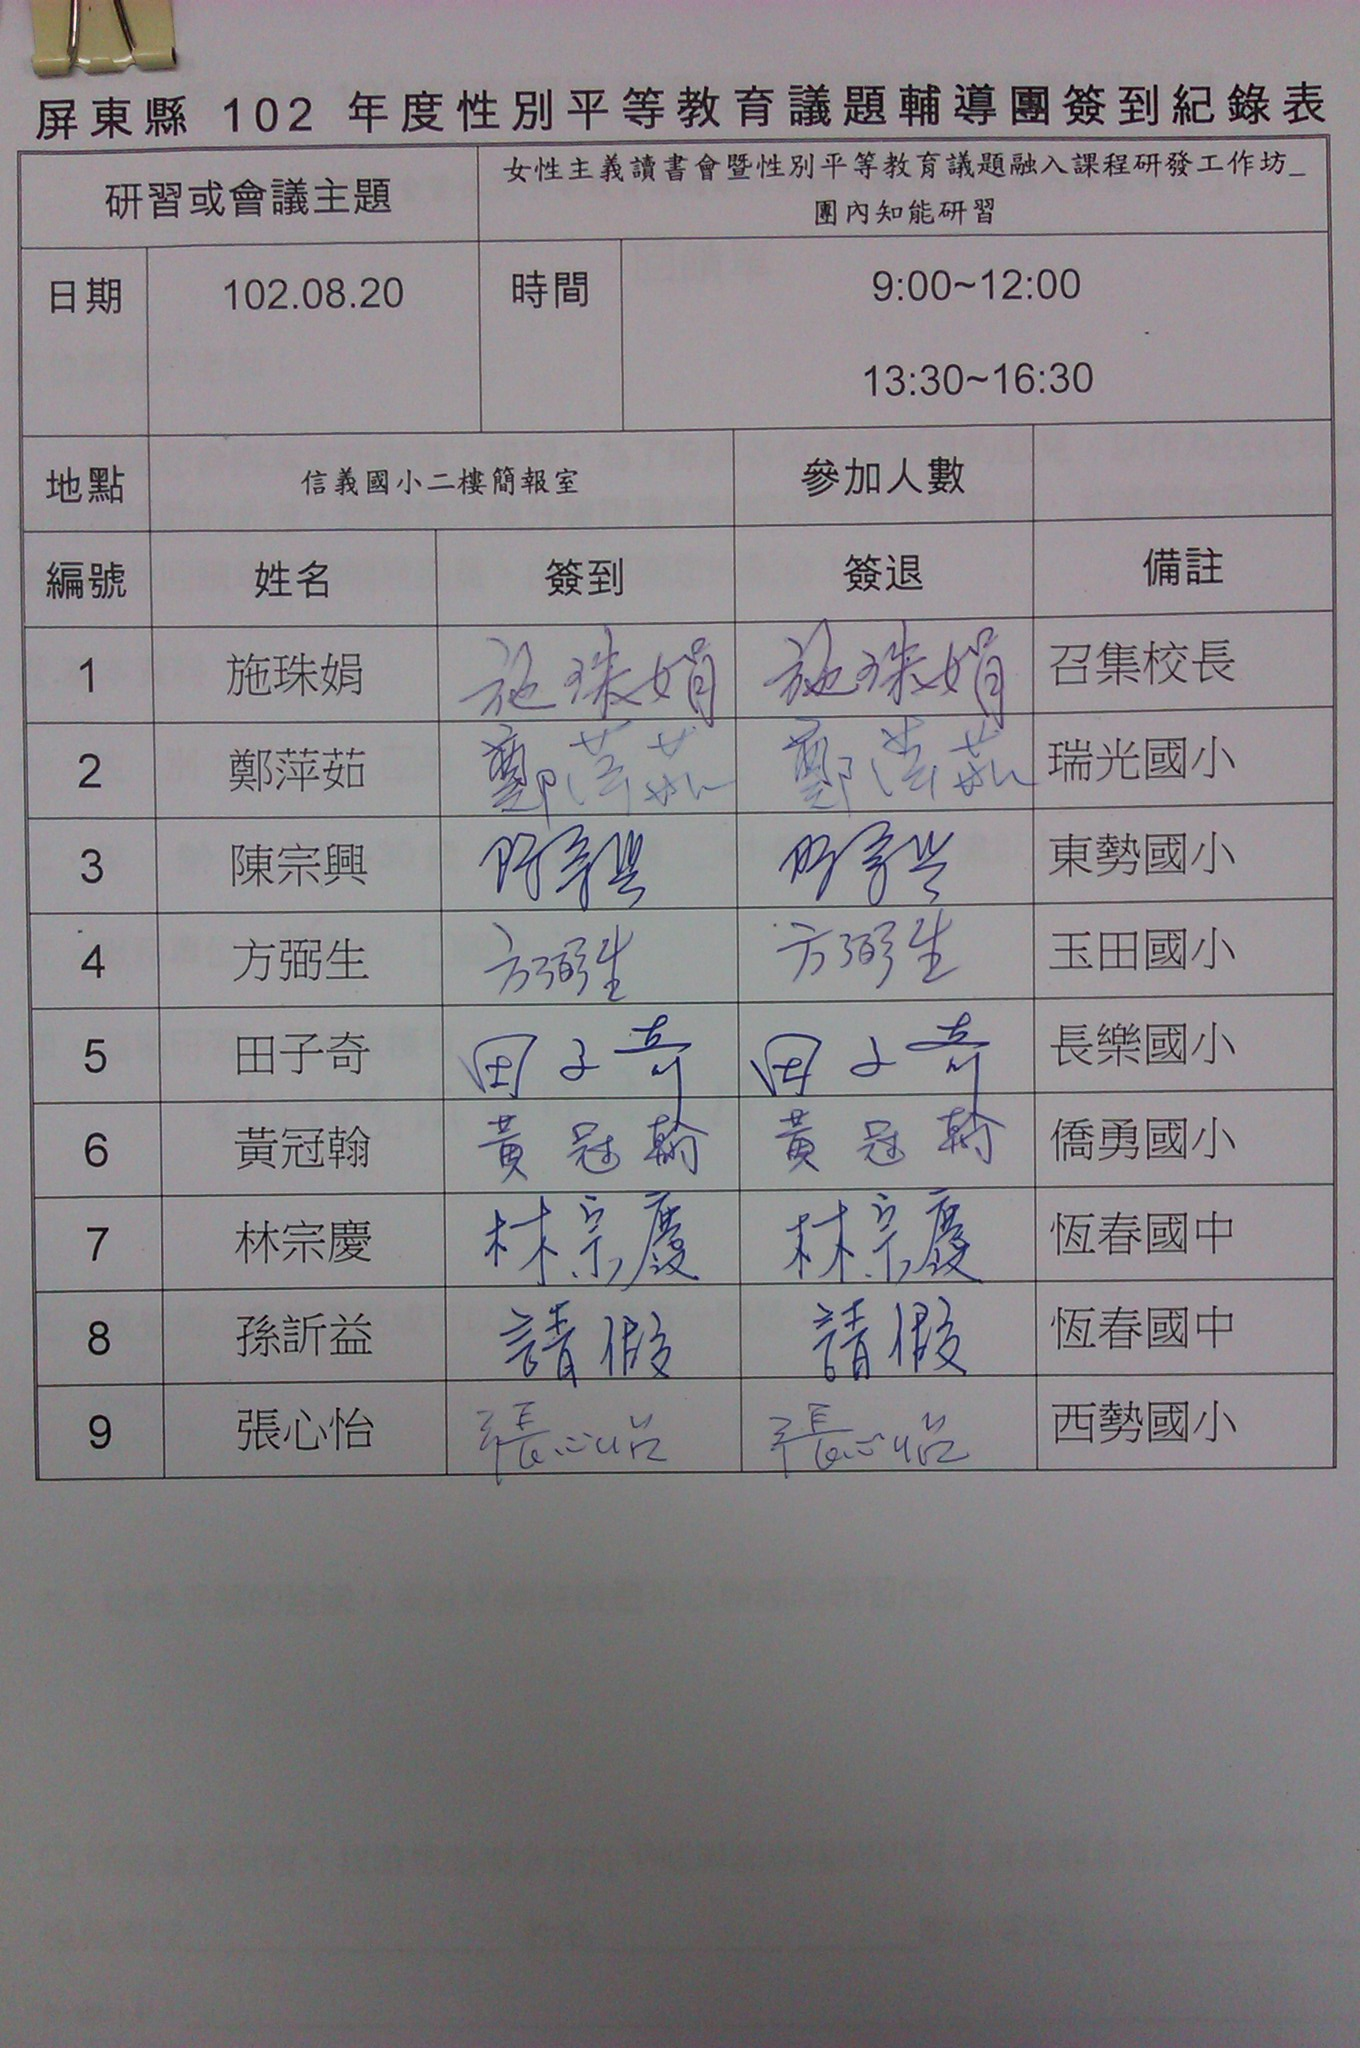 屏東縣 102 年度性別平等教育議題輔導團簽到紀錄表
研習或會議主題 女性主義讀書會暨性別平等教育議題融入課程研發工作坊_
團內知能研習
日期 102.08.20 時間 9:00~12:00
13:30~16:30
地點 信義國小二樓簡報室 參加人數
編號 姓名 簽到 簽退 備註
1 施珠娟 施珠娟 施珠娟 召集校長
2 鄭萍茹 鄭萍茹 鄭萍茹 瑞光國小
3 陳宗興 陳宗興 陳宗興 東勢國小
4 方弼生 方弼生 方弼生 玉田國小
5 田子奇 田子奇 田子奇 長樂國小
6 黃冠翰 黃冠翰 黃冠翰 僑勇國小
7 林宗慶 林宗慶 林宗慶 恆春國中
8 孫訢益 請假 請假 恆春國中
9 張心怡 張心怡 張心怡 西勢國小